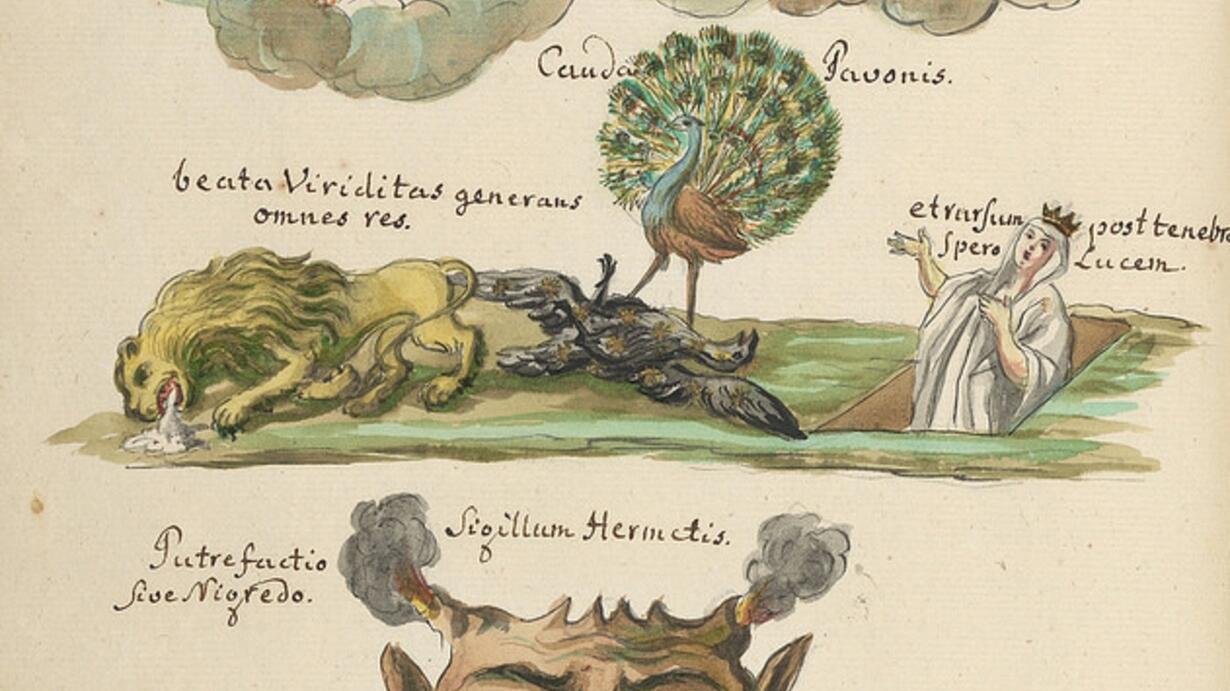 Cauda Pavonis.
beata Viriditas generans
omnes res.
et rursum post tenebra
spero Lucem.
Sigillum Hermetis.
Putrefactio
sive Nigredo.